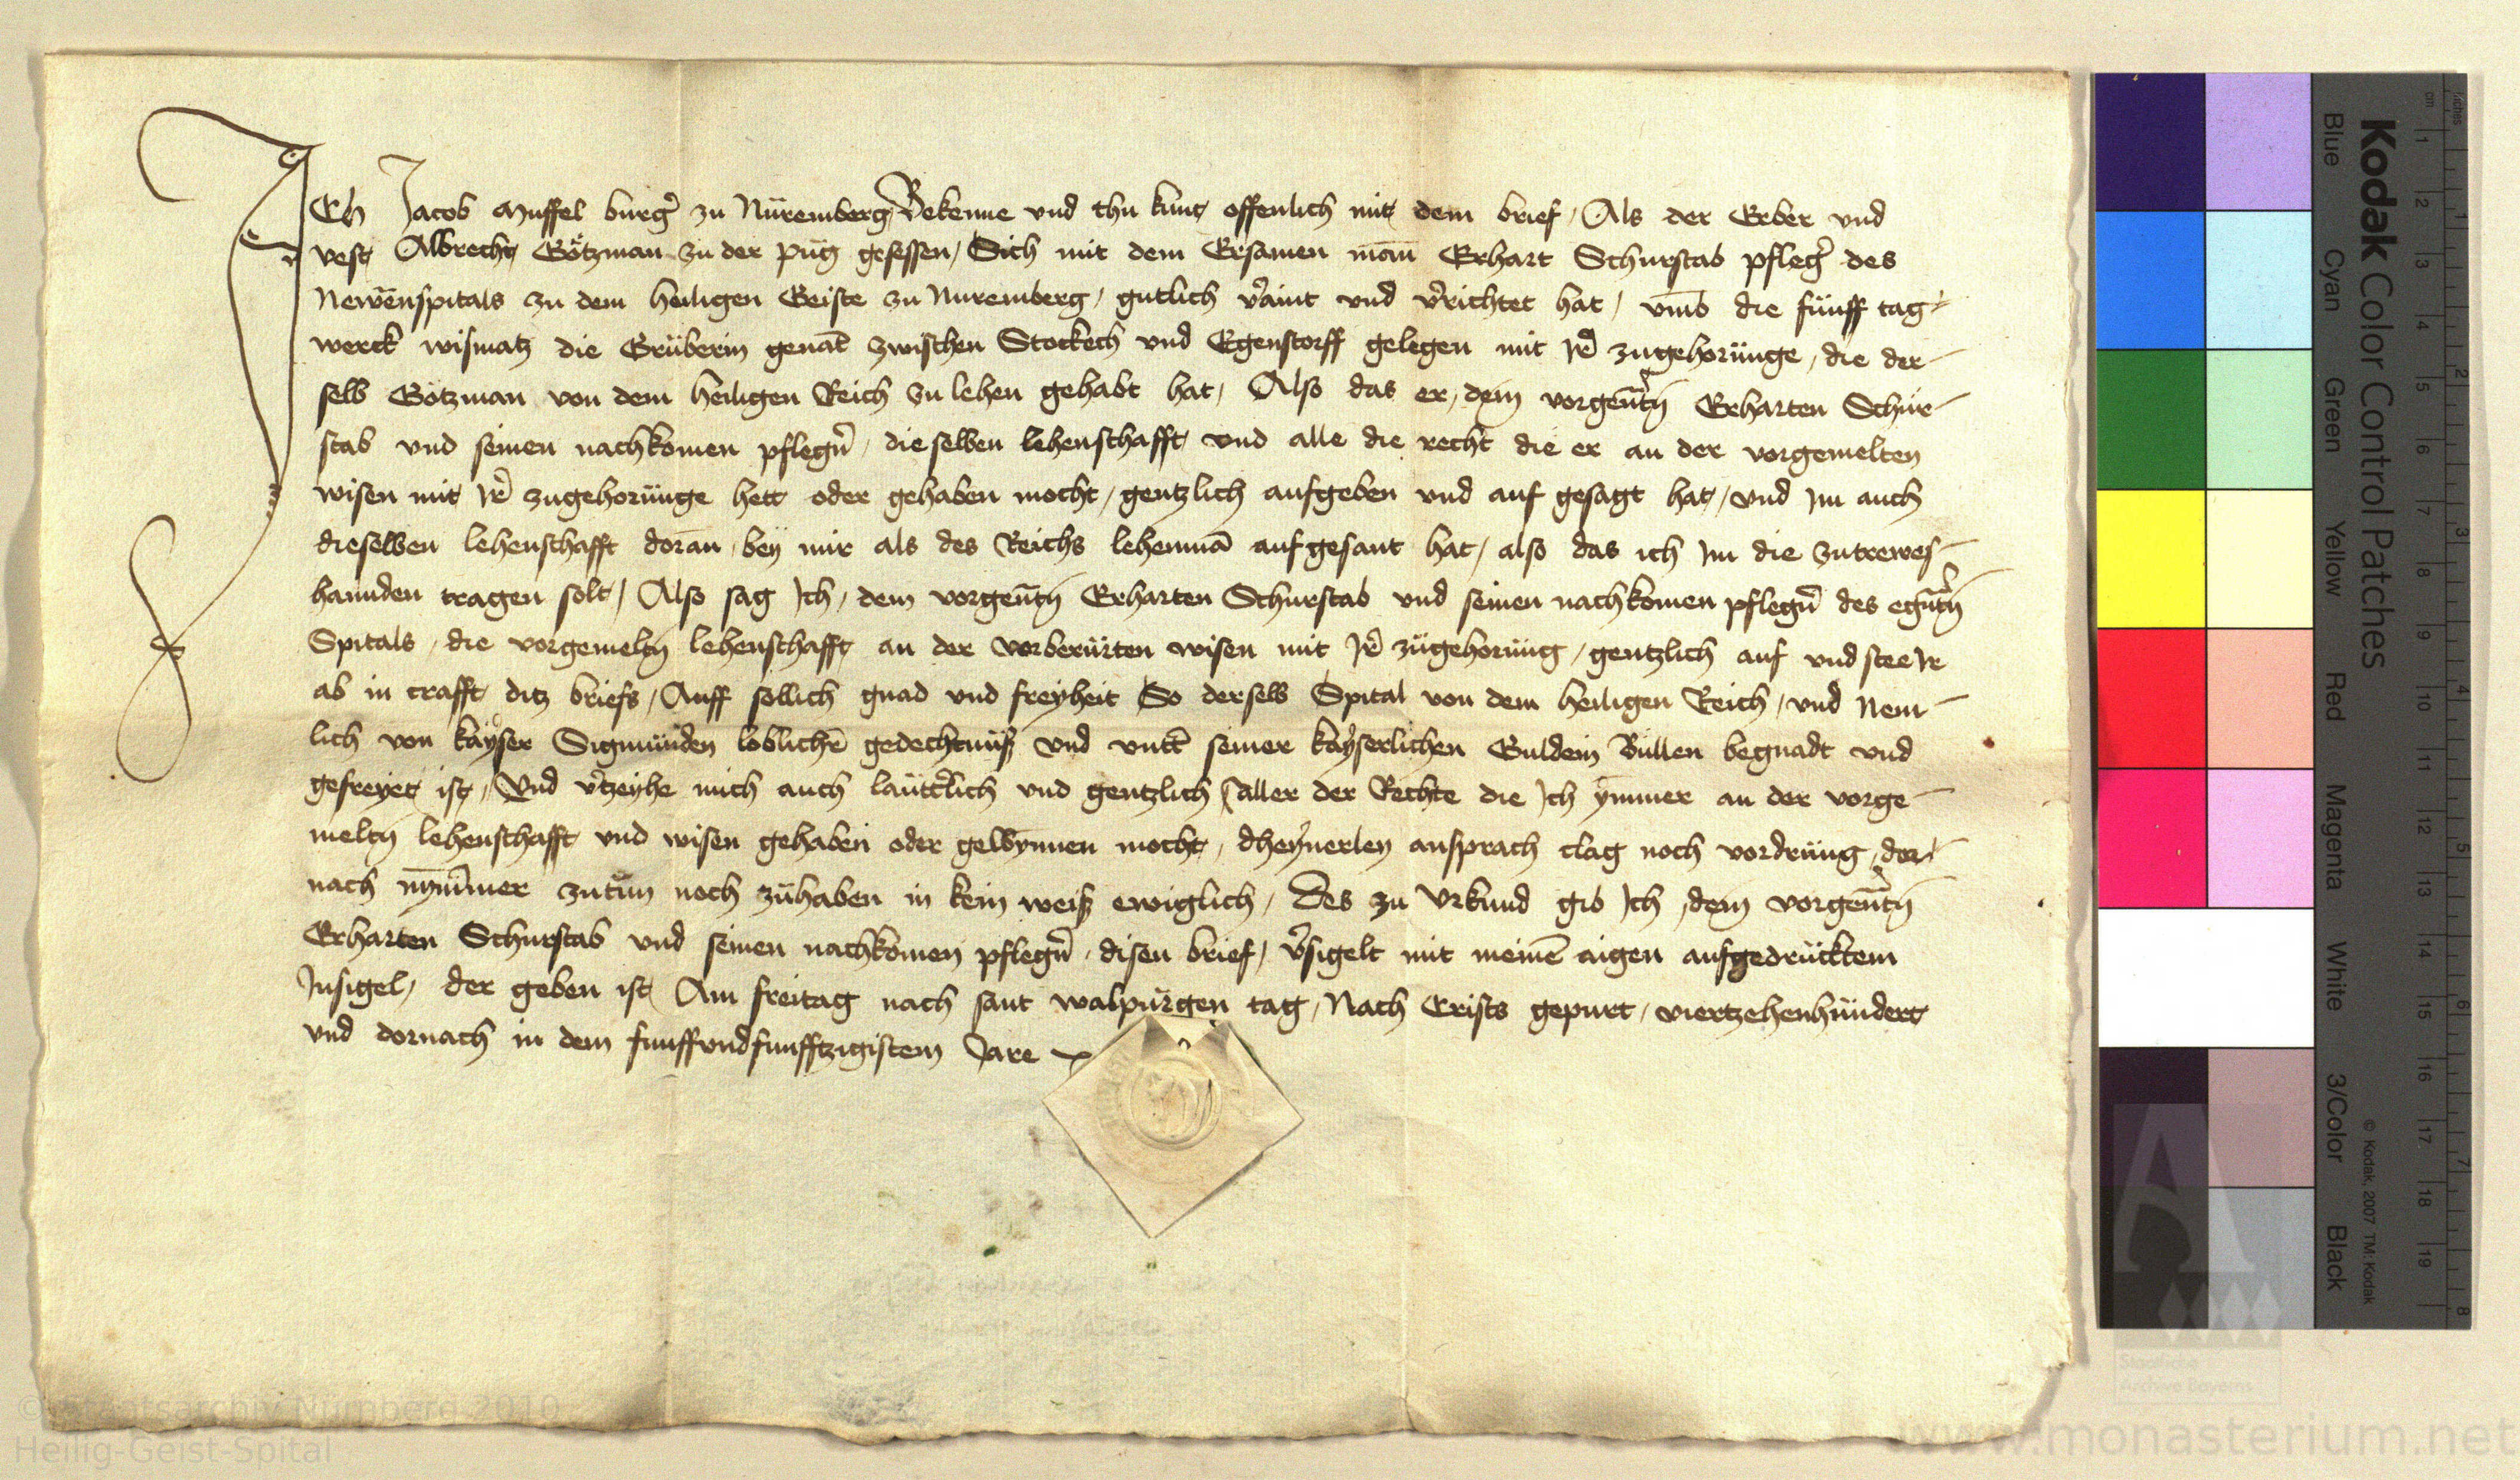 ICh Jacob Muffel burg̃ zu Nüremberg Bekenne vnd thu kunt offenlich mit dem brief / Als der Erber vnd
vest Albrecht Götzman zu der Püg gesessen / Sich mit dem Ersamen mān Erhart Schurstab pfleg̃ des
Newēnspitals zu dem heiligen Geiste zu Nuremberg / gutlich v̄aint vnd v̄richtet hat / vm̄b die fünff tag-
werck wismatz die Grüberin genāt zwischen Stockech vnd Egenstorff gelegen mit Jr̄ zugehorünge / die der-
selb Götzman von dem heiligen Reich zu lehen gehabt hat / Also das er / dem vorgen̄tn̄ Erharten Schür-
stab vnd seinen nachkomen pflegn̄ / dieselben lehenschafft vnd alle die recht die er an der vorgemelten
wisen mit Jr̄ zugehorünge hett oder gehaben mocht / gentzlich aufgeben vnd auf gesagt hat / vnd Jm auch
dieselben lehenschafft dorān / bey mir als des Reichs lehenmā aufgesant hat / also das ich Jm die zutrewes-
hannden tragen solt / Also sag Jch / dem vorgen̄tn̄ Erharten Schurstab vnd seinen nachkomen pflegn̄ des egn̄tn̄
Spitals / die vorgemeltn̄ lehenschafft an der vorberürten wisen mit Jr̄ zügehorüng / gentzlich auf vnd stee Jr
ab in crafft ditz briefs / Auff sollich gnad vnd freyheit So derselb Spital von dem heiligen Reich / vnd Nem-
lich von kayser Sigmünden loblichē gedechtnüß vnd vntt̄ seiner kayserlichen Guldein Büllen begnadt vnd
gefreyet ist / Vnd v̄tzeyhe mich auch lautt̄lich vnd gentzlich aller der Rechte die Jch ymmer an der vorge-
meltn̄ lehenschafft vnd wisen gehaben oder gewynnen mocht / dheynerley ansprach clag noch vordrüng / dor-
nach nym̄mer zutün noch zühaben in kein weiß ewiglich / Des zu Vrkund gib Jch / dem vorgen̄tn̄
Erharten Schurstab vnd seinen nachkomen pflegn̄ / disen brief / v̄sigelt mit meinē aigen aufgedrücktem
Jnsigel / der geben ist Am freitag nach sant walpürgen tag / Nach Crists gepurt / viertzehenhündert
vnd dornach in dem funffvndfunfftzigistem Jare
Kodak Color Control Patches
Blue Cyan Green Yellow Red Magenta White 3/Color Black
© Kodak, 2007 TM: Kodak
cm 1 2 3 4 5 6 7 8 9 10 11 12 13 14 15 16 17 18 19
inches 1 2 3 4 5 6 7 8
Staatliche
Archive Bayerns
© Staatsarchiv Nürnberg 2010
Heilig-Geist-Spital
www.monasterium.net